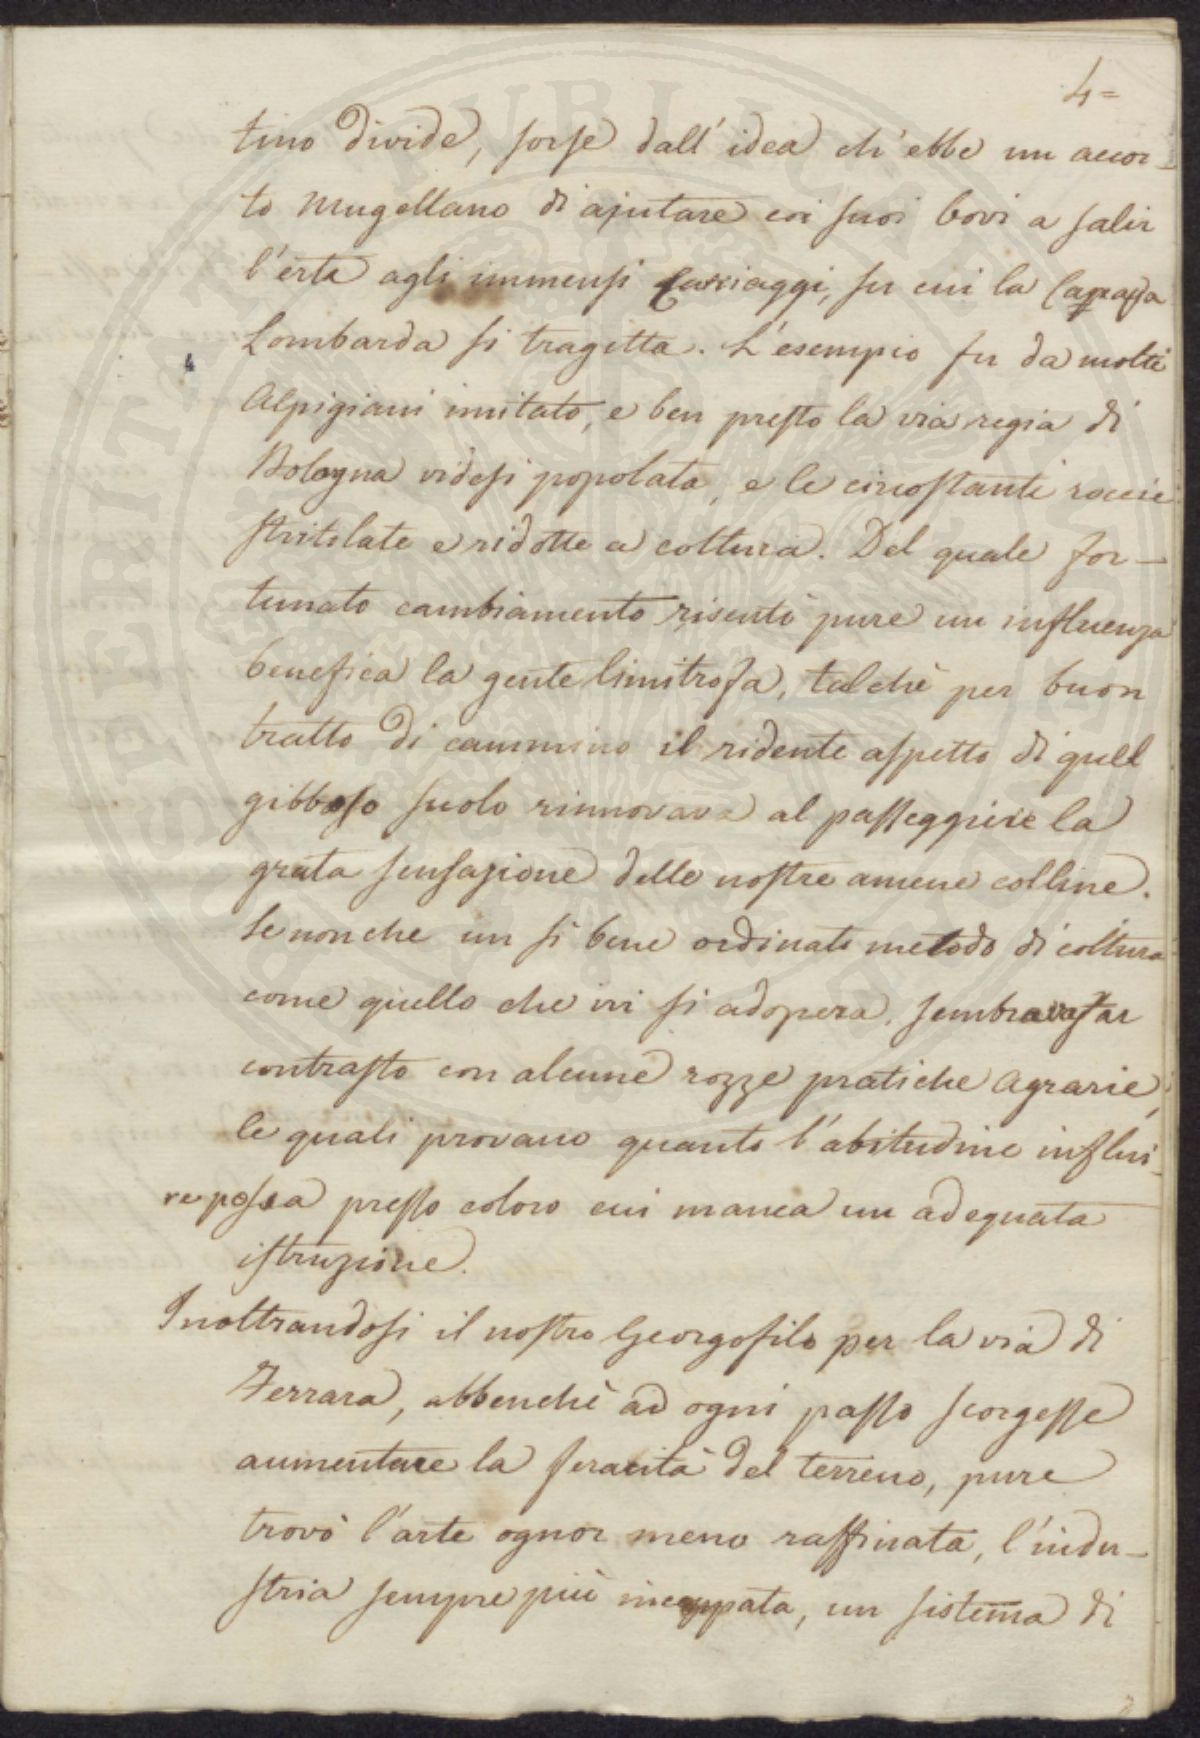 4=
tino divide, forse dall'idea ch'ebbe un accor-
to Mugellano di ajutare coi suoi bovi a salir
l'erta agli immensi Carriaggi, su cui la Canapa
Lombarda si tragitta. L'esempio fu da molti
Alpigiani imitato, e ben presto la via regia di
Bologna videsi popolata, e le circostanti roccie
stritolate e ridotte a coltura. Del quale for-
tunato cambiamento risentì pure un influenza
benefica la gente limitrofa, talchè per buon
tratto di cammino il ridente aspetto di quel
gibboso suolo rinnovava al passeggiere la
grata sensazione delle nostre amene colline.
Se non che un sì bene ordinato metodo di coltura
come quello che ivi si adopera, sembrava far
contrasto con alcune rozze pratiche Agrarie,
le quali provano quanto l'abitudine influi-
re possa presso coloro cui manca un adequata
istruzione.
Inoltrandosi il nostro Georgofilo per la via di
Ferrara, abbenchè ad ogni passo scorgesse
aumentare la feracità del terreno, pure
trovò l'arte ognor meno raffinata, l'indu-
stria sempre più inceppata, un sistema di